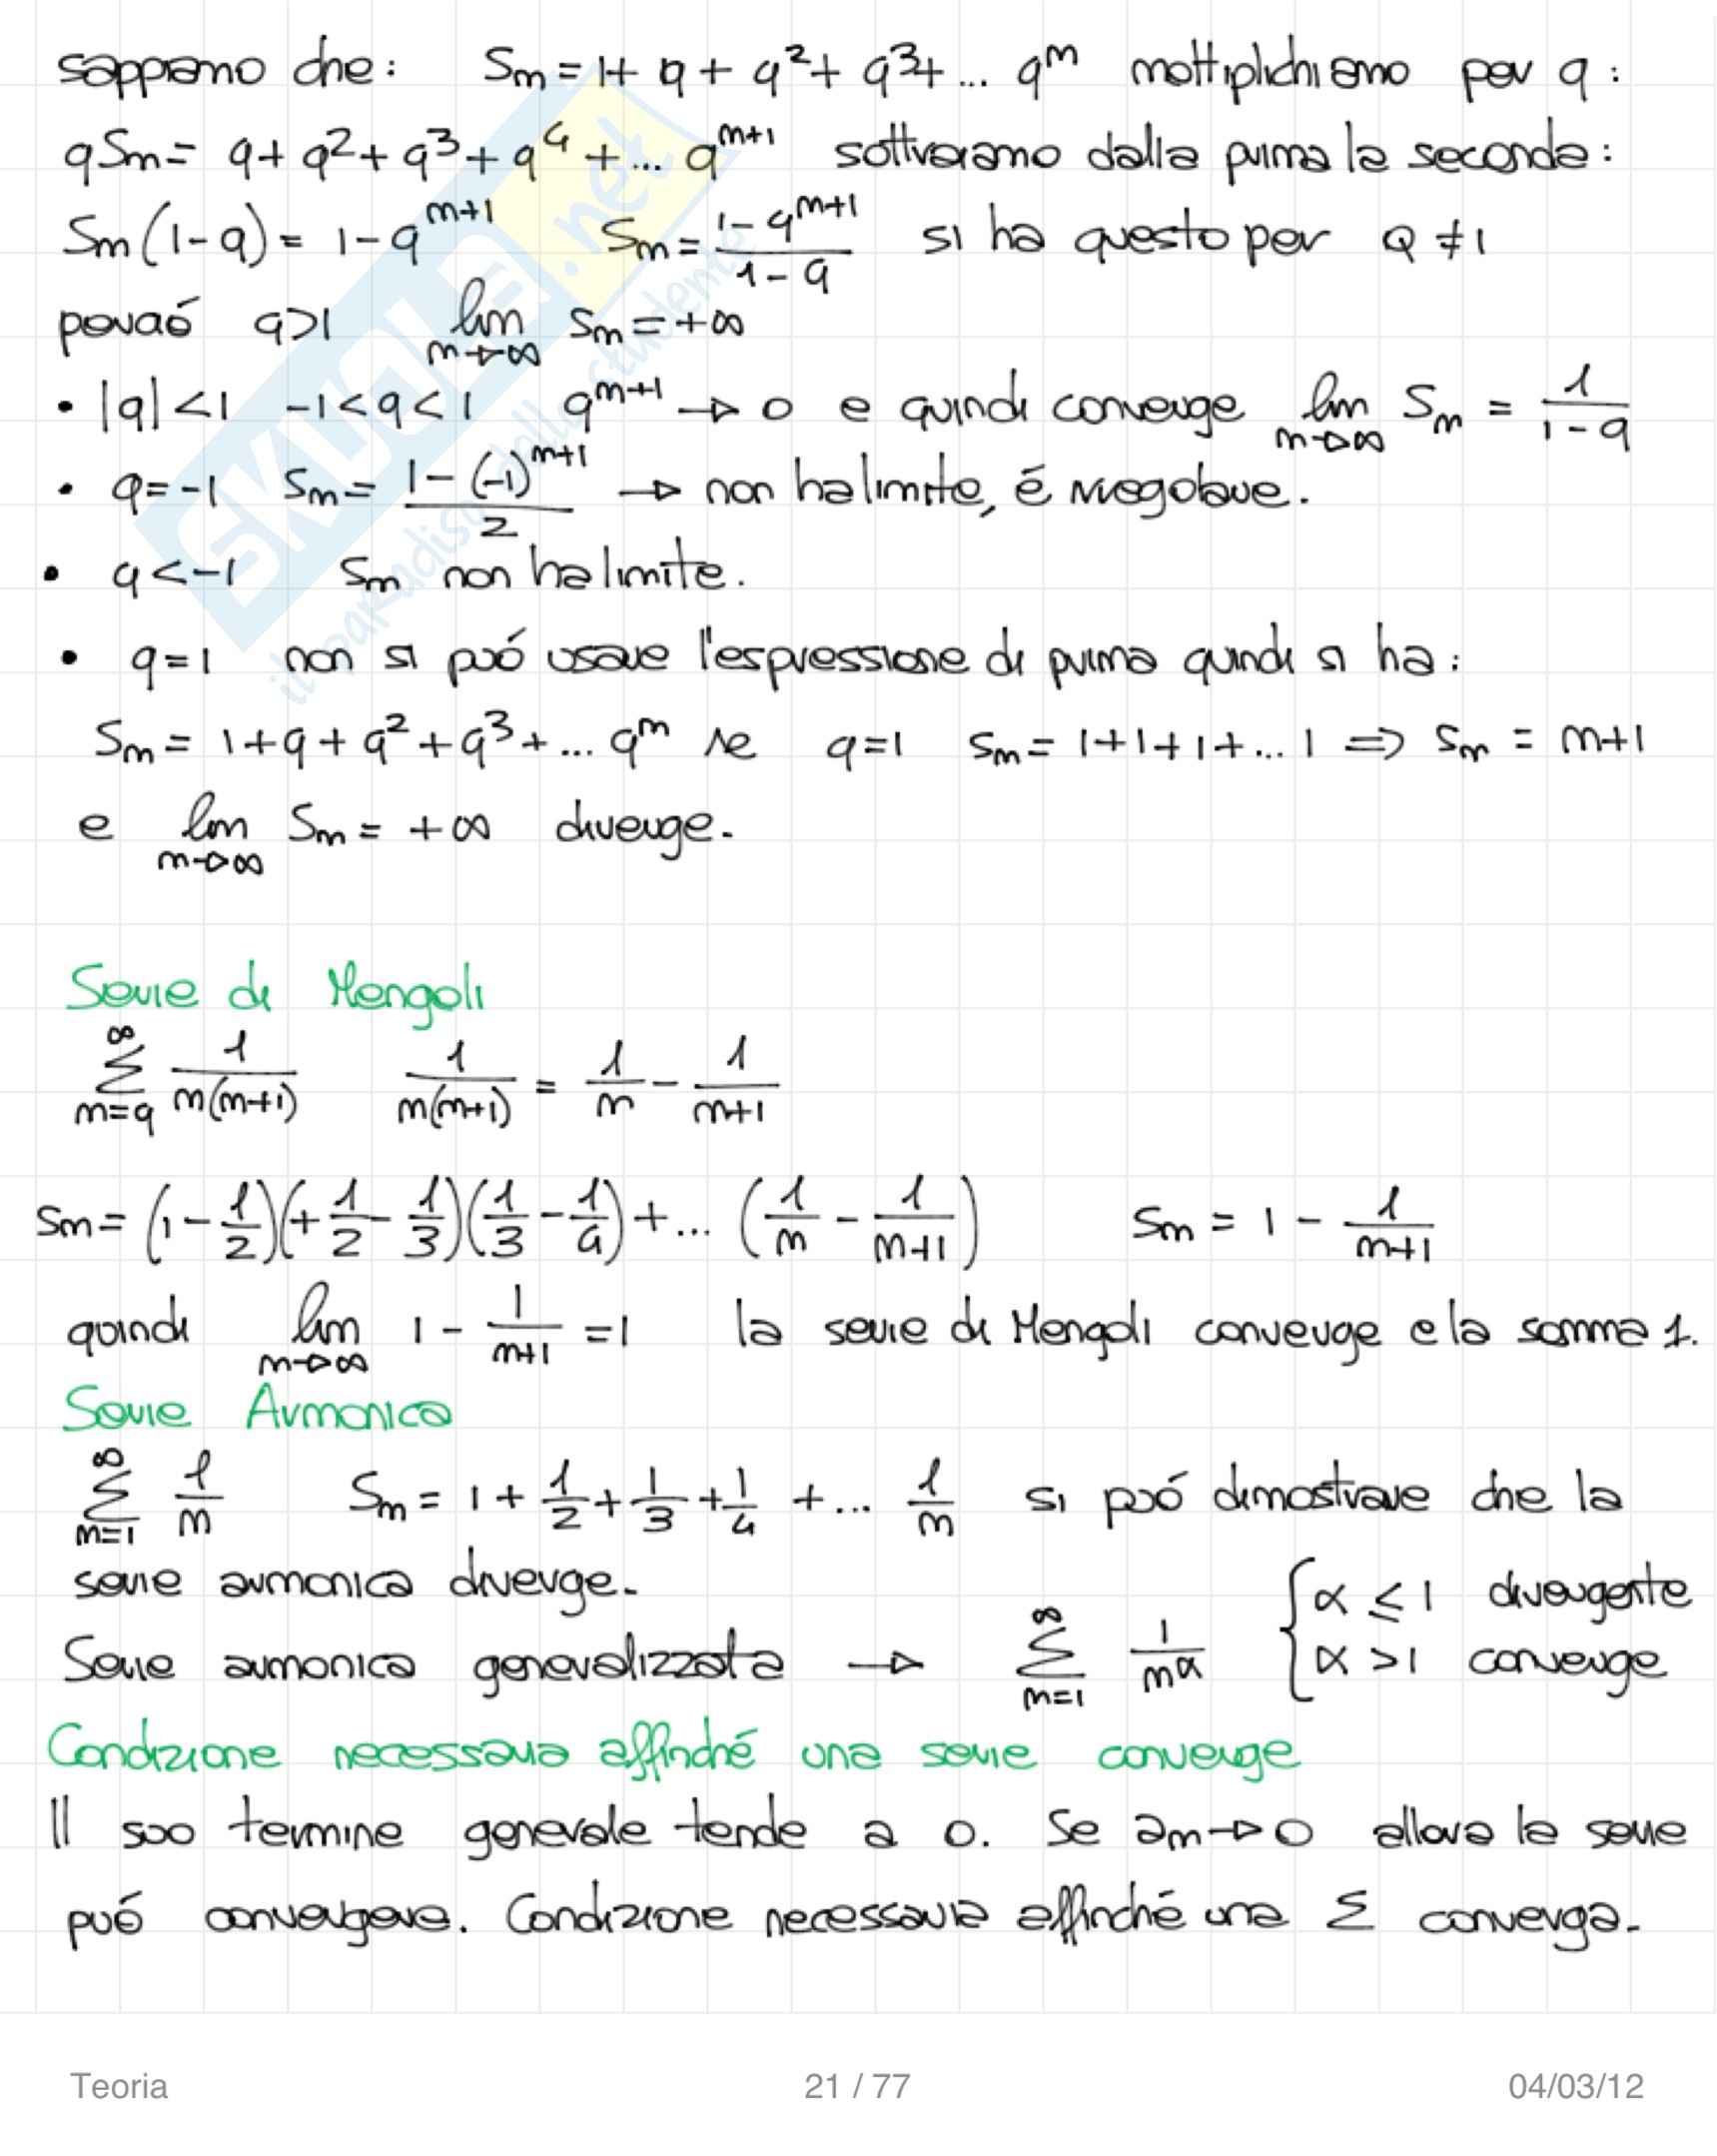 sappiamo che: Sn = 1 + q + q² + q³ + ... qⁿ moltiplichiamo per q:
qSn = q + q² + q³ + q⁴ + ... qⁿ⁺¹ sottraiamo dalla prima la seconda:
Sn(1-q) = 1-qⁿ⁺¹ Sn = (1-qⁿ⁺¹)/(1-q) si ha questo per q ≠ 1
perciò q>1 lim n→∞ Sn = +∞
• |q|<1 -1<q<1 qⁿ⁺¹ → 0 e quindi converge lim n→∞ Sn = 1/(1-q)
• q=-1 Sn = (1-(-1)ⁿ⁺¹)/2 → non ha limite, é irregolare.
• q<-1 Sn non ha limite.
• q=1 non si puó usare l'espressione di prima quindi si ha:
Sn = 1+q+q²+q³+... qⁿ se q=1 Sn = 1+1+1+... 1 => Sn = n+1
e lim n→∞ Sn = +∞ diverge.
Serie di Mengoli
∞ Σ n=q 1/(n(n+1)) 1/(n(n+1)) = 1/n - 1/(n+1)
Sn = (1-1/2)(+1/2-1/3)(1/3-1/4)+... (1/n - 1/(n+1)) Sn = 1 - 1/(n+1)
quindi lim n→∞ 1 - 1/(n+1) = 1 la serie di Mengoli converge e la somma 1.
Serie Armonica
∞ Σ n=1 1/n Sn = 1 + 1/2 + 1/3 + 1/4 + ... 1/n si puó dimostrare che la
serie armonica diverge.
Serie armonica generalizzata → ∞ Σ n=1 1/nᵅ { α ≤ 1 divergente
α > 1 converge
Condizione necessaria affinché una serie converge
Il suo termine generale tende a 0. Se an→0 allora la serie
puó convergere. Condizione necessaria affinché una Σ converga.
SKUOLA.net
il paradiso dello studente
Teoria 21 / 77 04/03/12